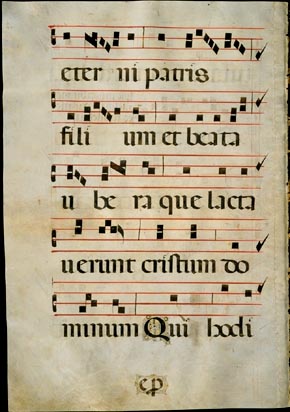 eter ni patris
fili um et beata
u be ra que lacta
uerunt cristum do
minum Qui hodi